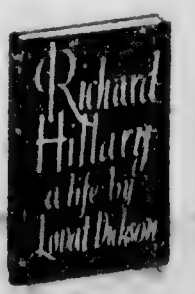 Richard
Hillary
a life by
Lovat Dickson